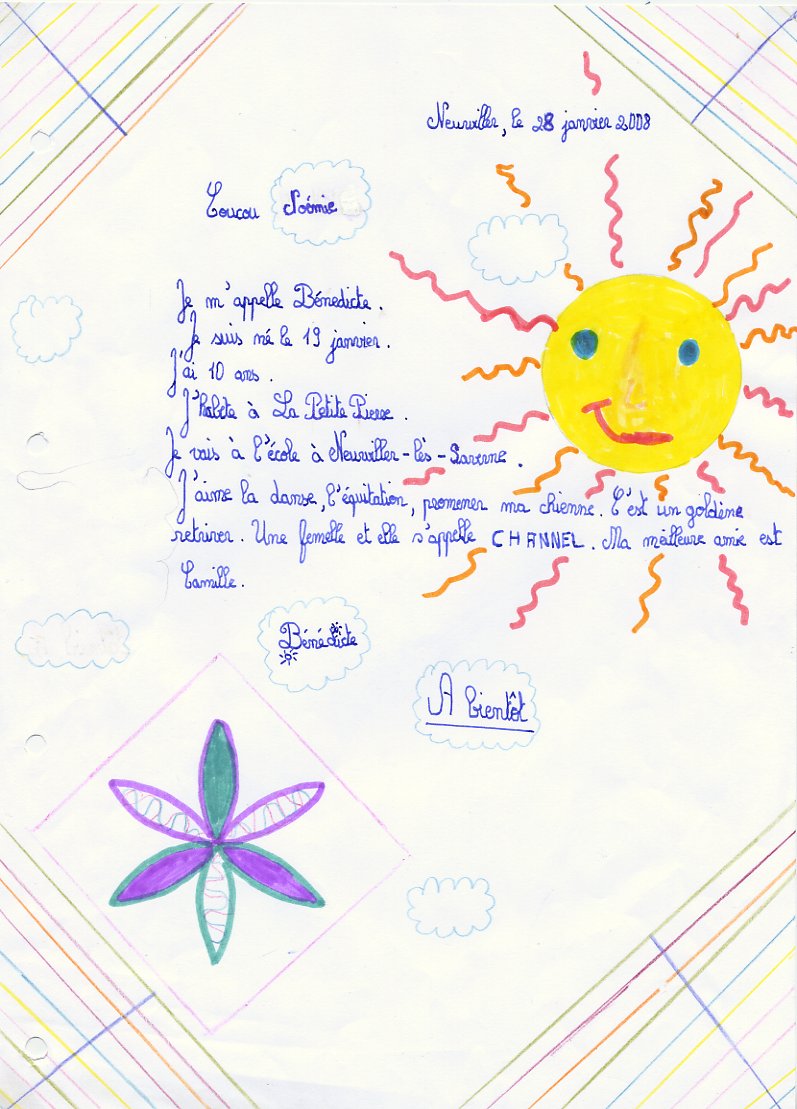 Neuwiller, le 28 janvier 2008
Coucou Noémie
Je m'appelle Bénedicte.
Je suis né le 19 janvier.
J'ai 10 ans.
J'habite à La Petite Pierre.
Je vais à l'école à Neuwiller-lès-Saverne.
J'aime la danse, l'équitation, promener ma chienne. C'est un goldène
retriver. Une femelle et elle s'appelle CHANNEL. Ma meilleure amie est
Camille.
Bénédicte
A bientôt